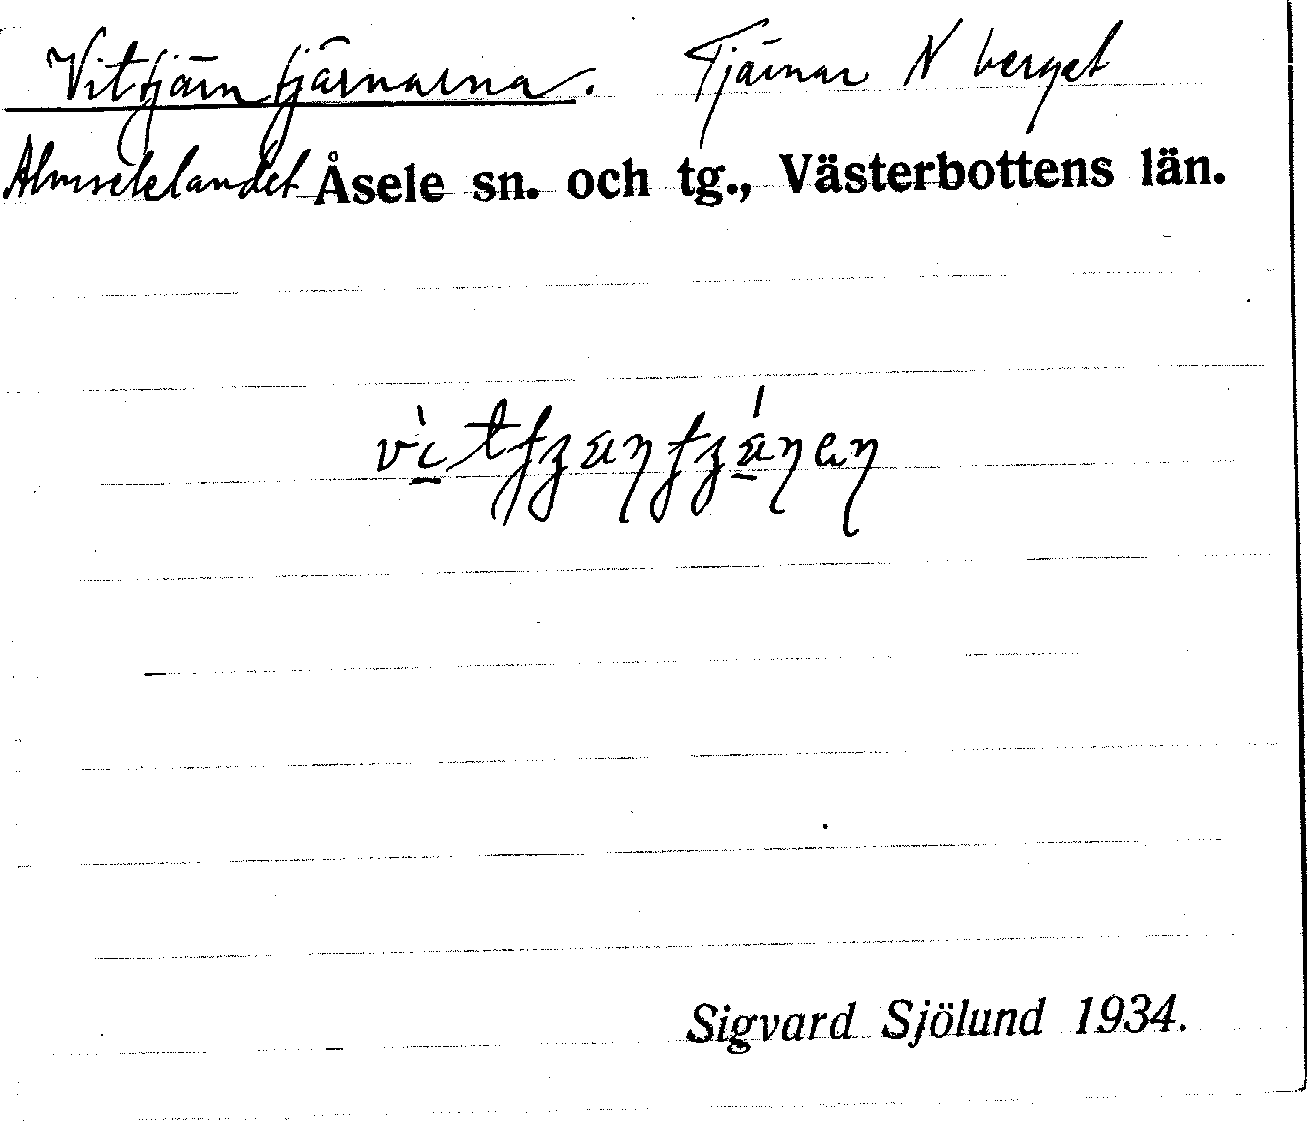 Vittjärntjärnarna. Tjärnar N berget
Almselelandet Åsele sn. och tg., Västerbottens län.
Sigvard Sjölund 1934.